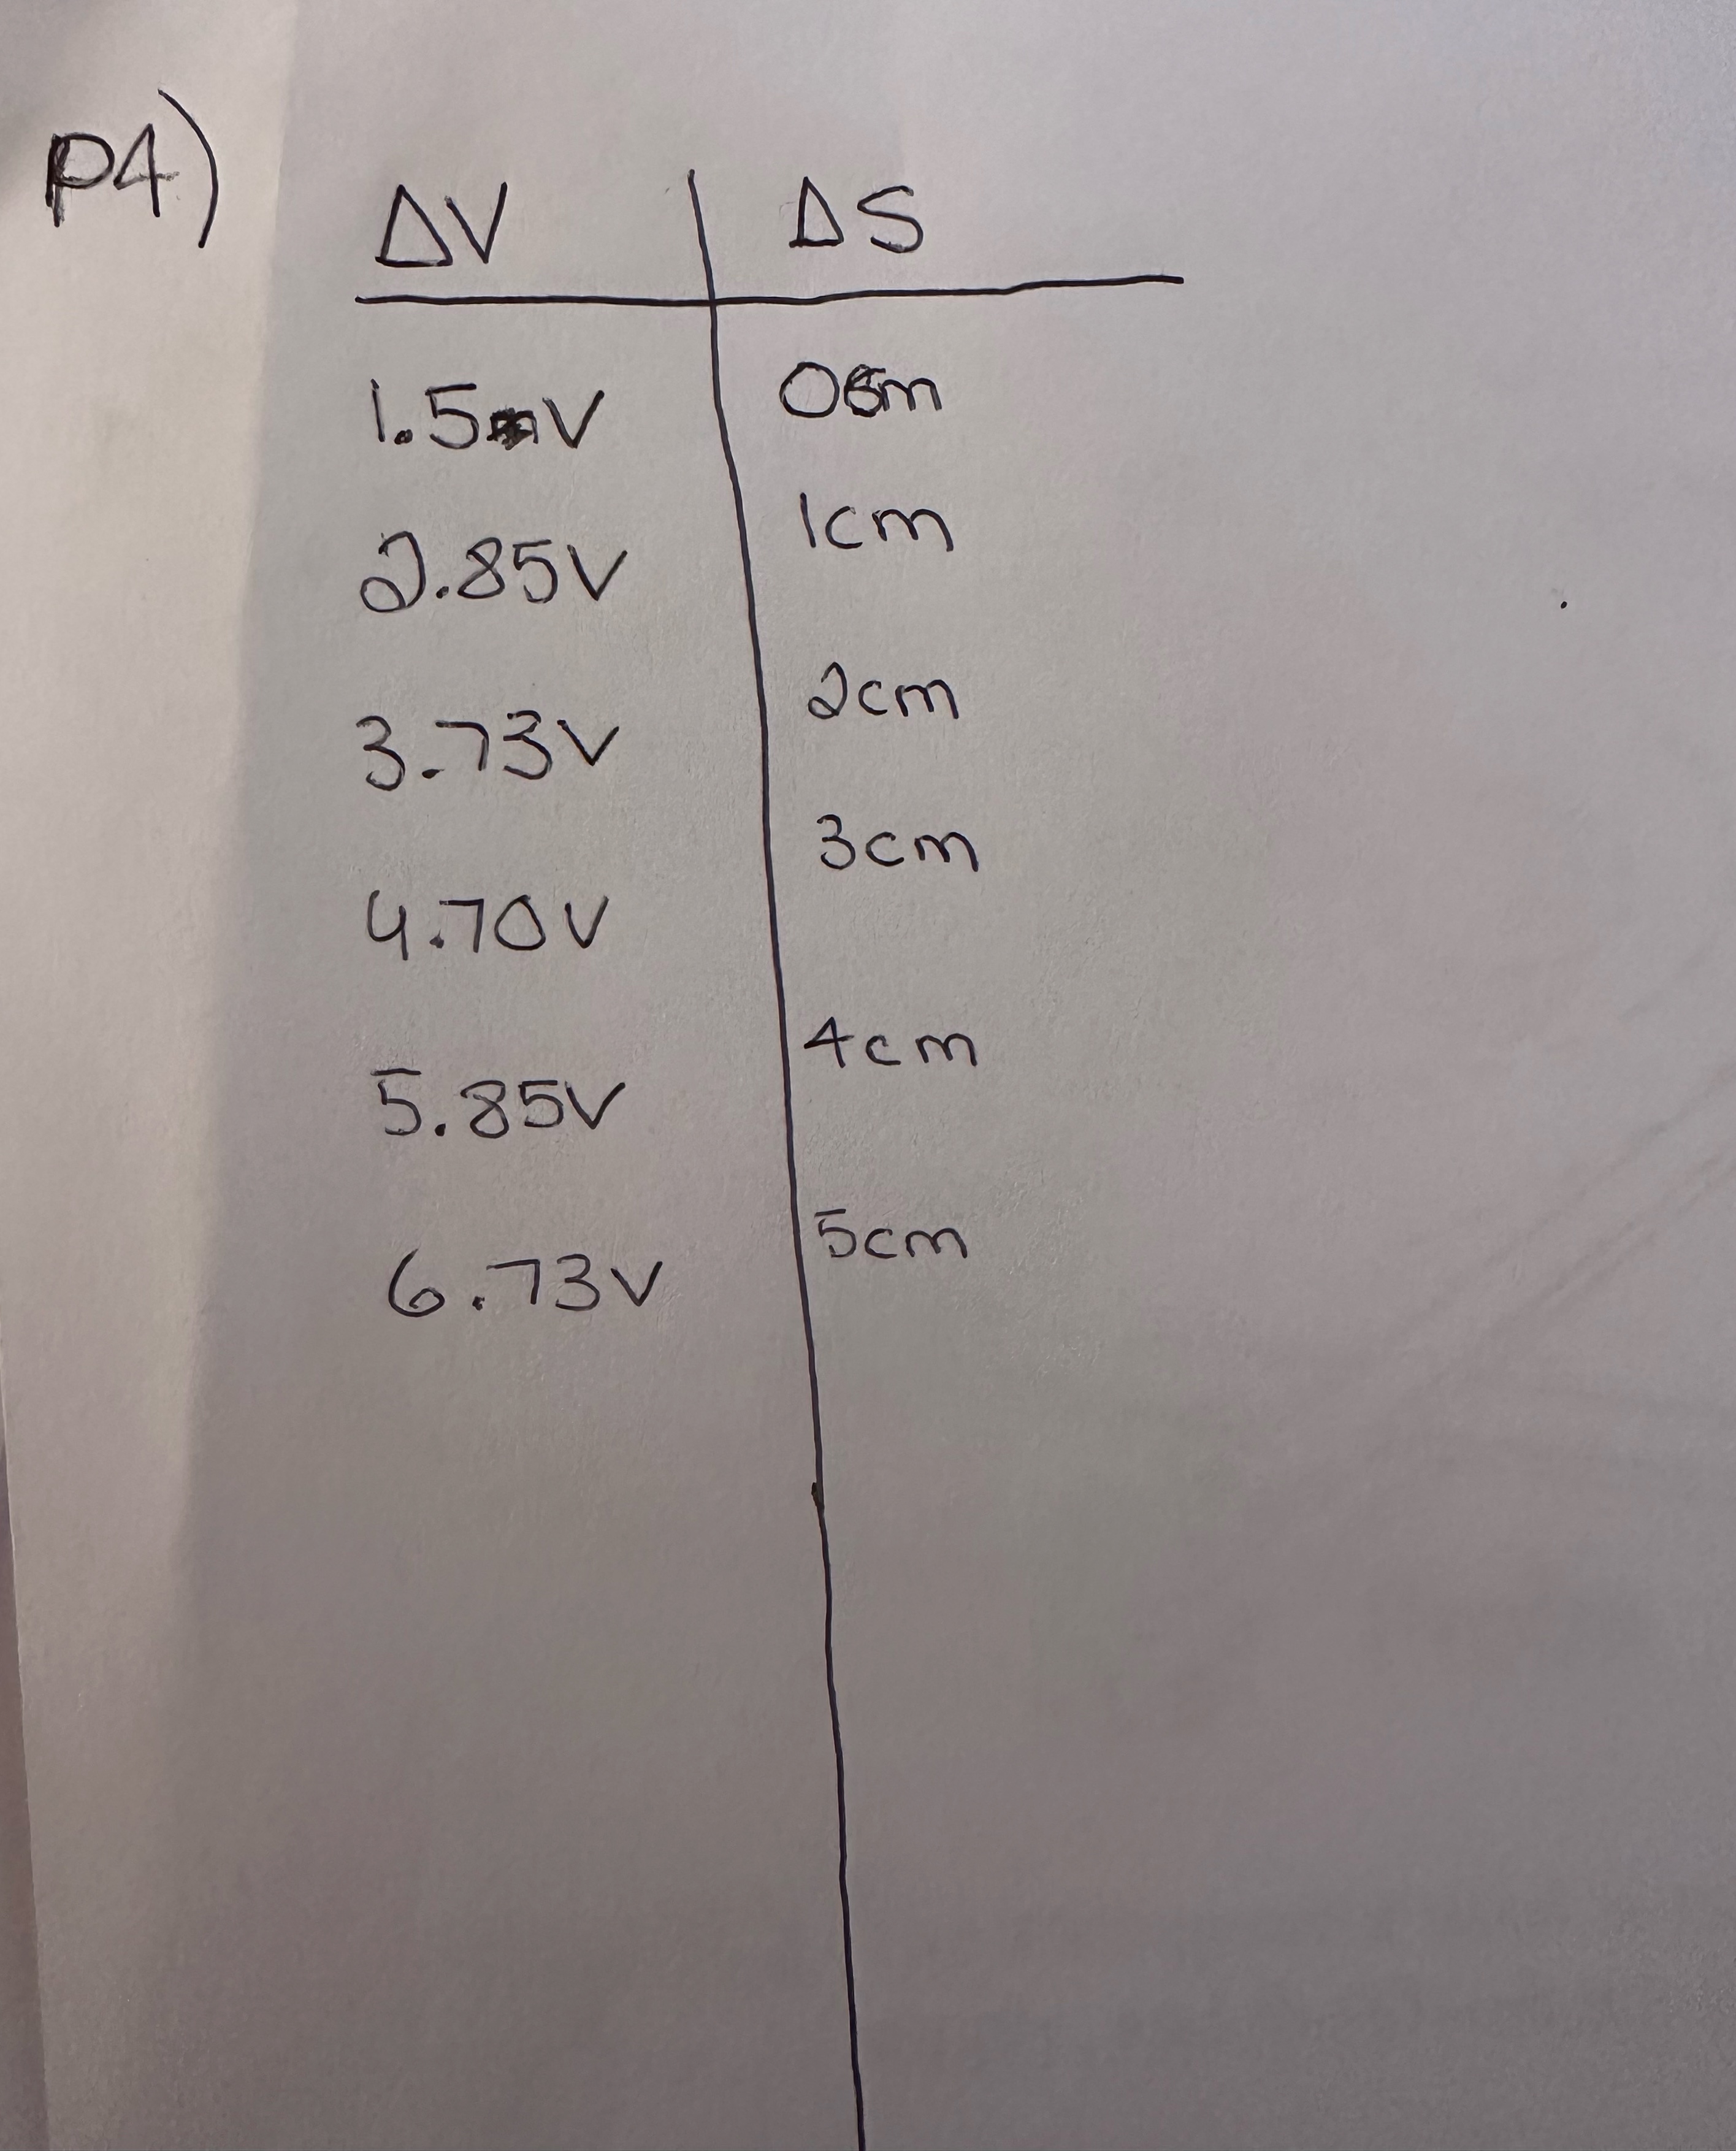 P4)
ΔV ΔS
1.5V 0cm
2.85V 1cm
3.73V 2cm
4.70V 3cm
5.85V 4cm
6.73V 5cm